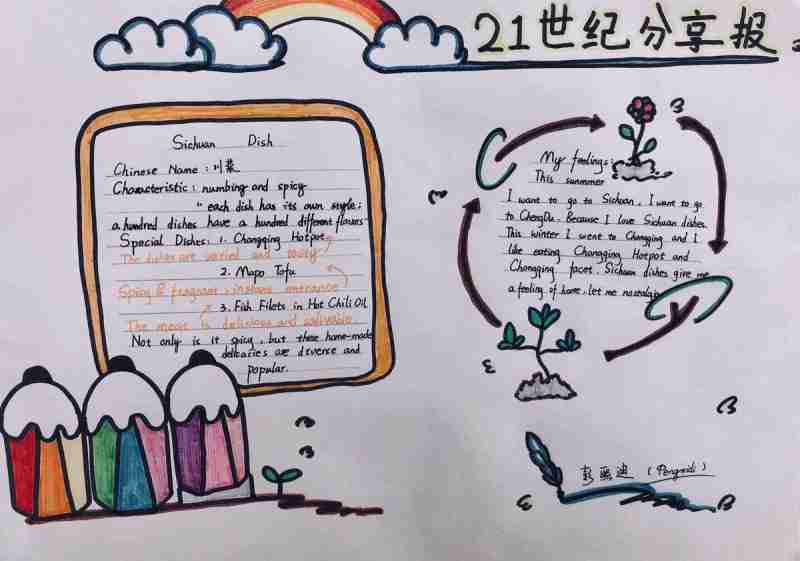 21世纪分享报
Sichuan Dish
Chinese Name : 川菜
Characteristic : numbing and spicy
" each dish has its own style;
a hundred dishes have a hundred different flavors.
Special Dishes : 1. Chongqing Hotpot
The dishes are varied and tasty
2. Mapo Tofu
Spicy & fragrant , instant entrance
3. Fish Filets in Hot Chili Oil
The meat is delicious and salivable
Not only is it spicy , but these home-made
delicacies are diverse and
popular.
My feelings:
This summer
I want to go to Sichuan , I want to go
to ChengDu. Because I love Sichuan dishes.
This winter I went to Chongqing and I
like eating Chongqing Hotpot and
Chongqing facet . Sichuan dishes give me
a feeling of home, let me nostalgia
彭 迪 ( )